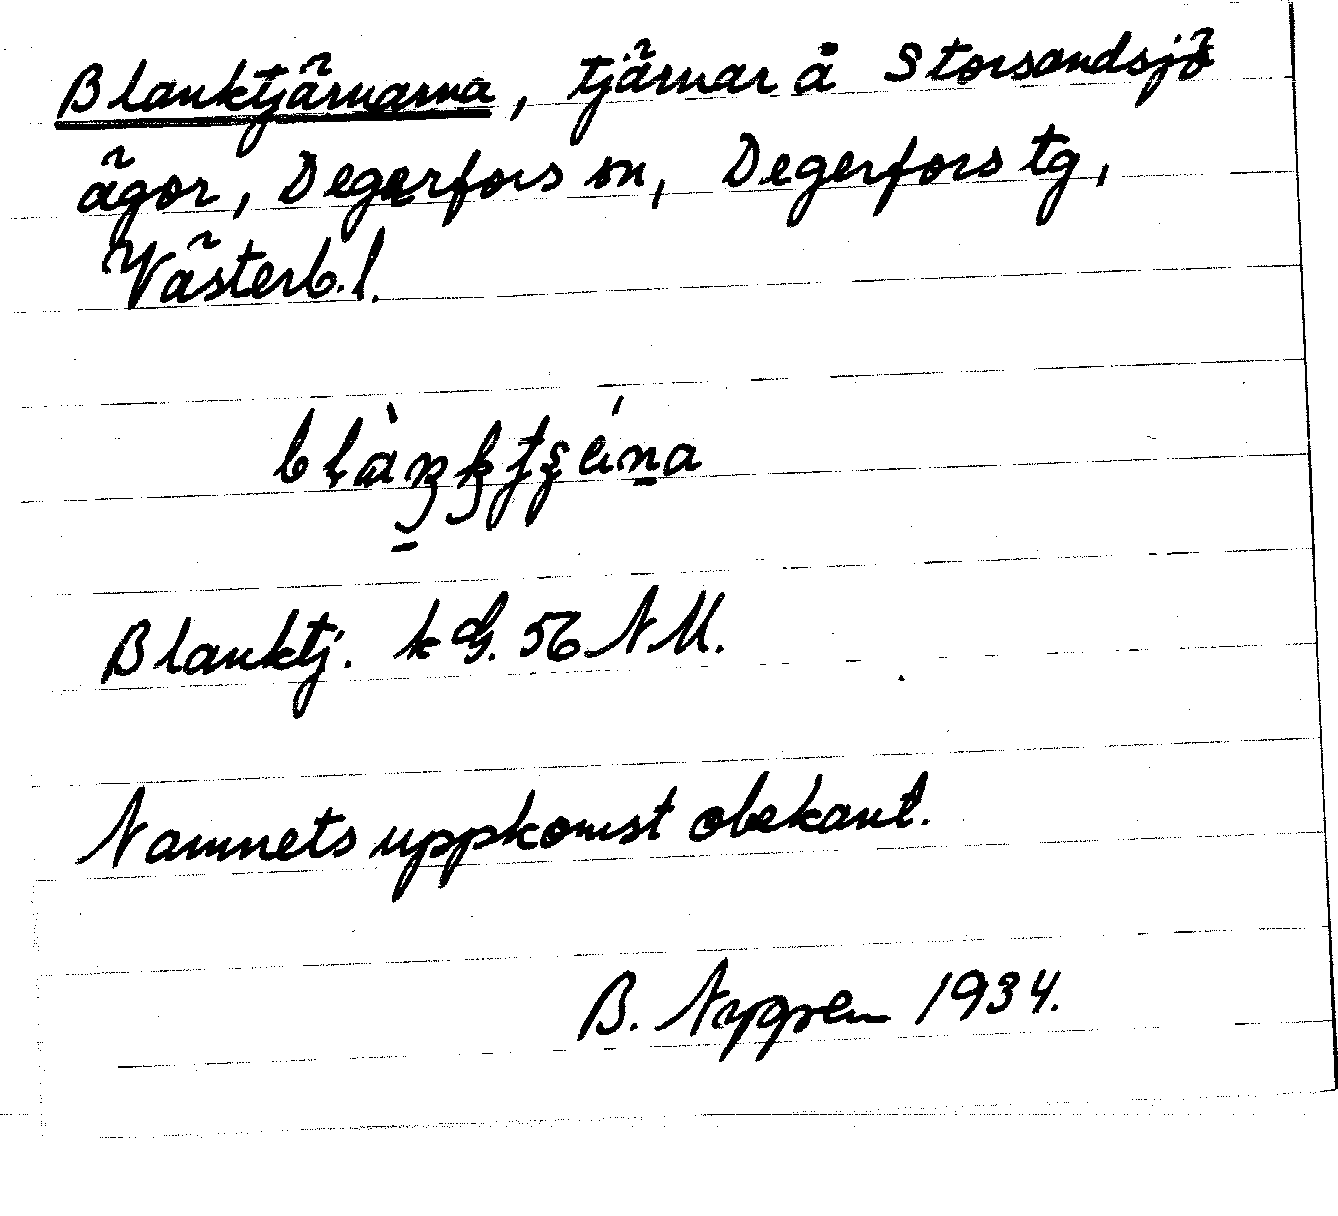 Blanktjärnarna, tjärnar å Storsandsjö
ägor, Degerfors sn, Degerfors tg,
Västerb. l.
Blanktj. k G. 56 NM.
Namnets uppkomst obekant.
B. Nygren 1934.